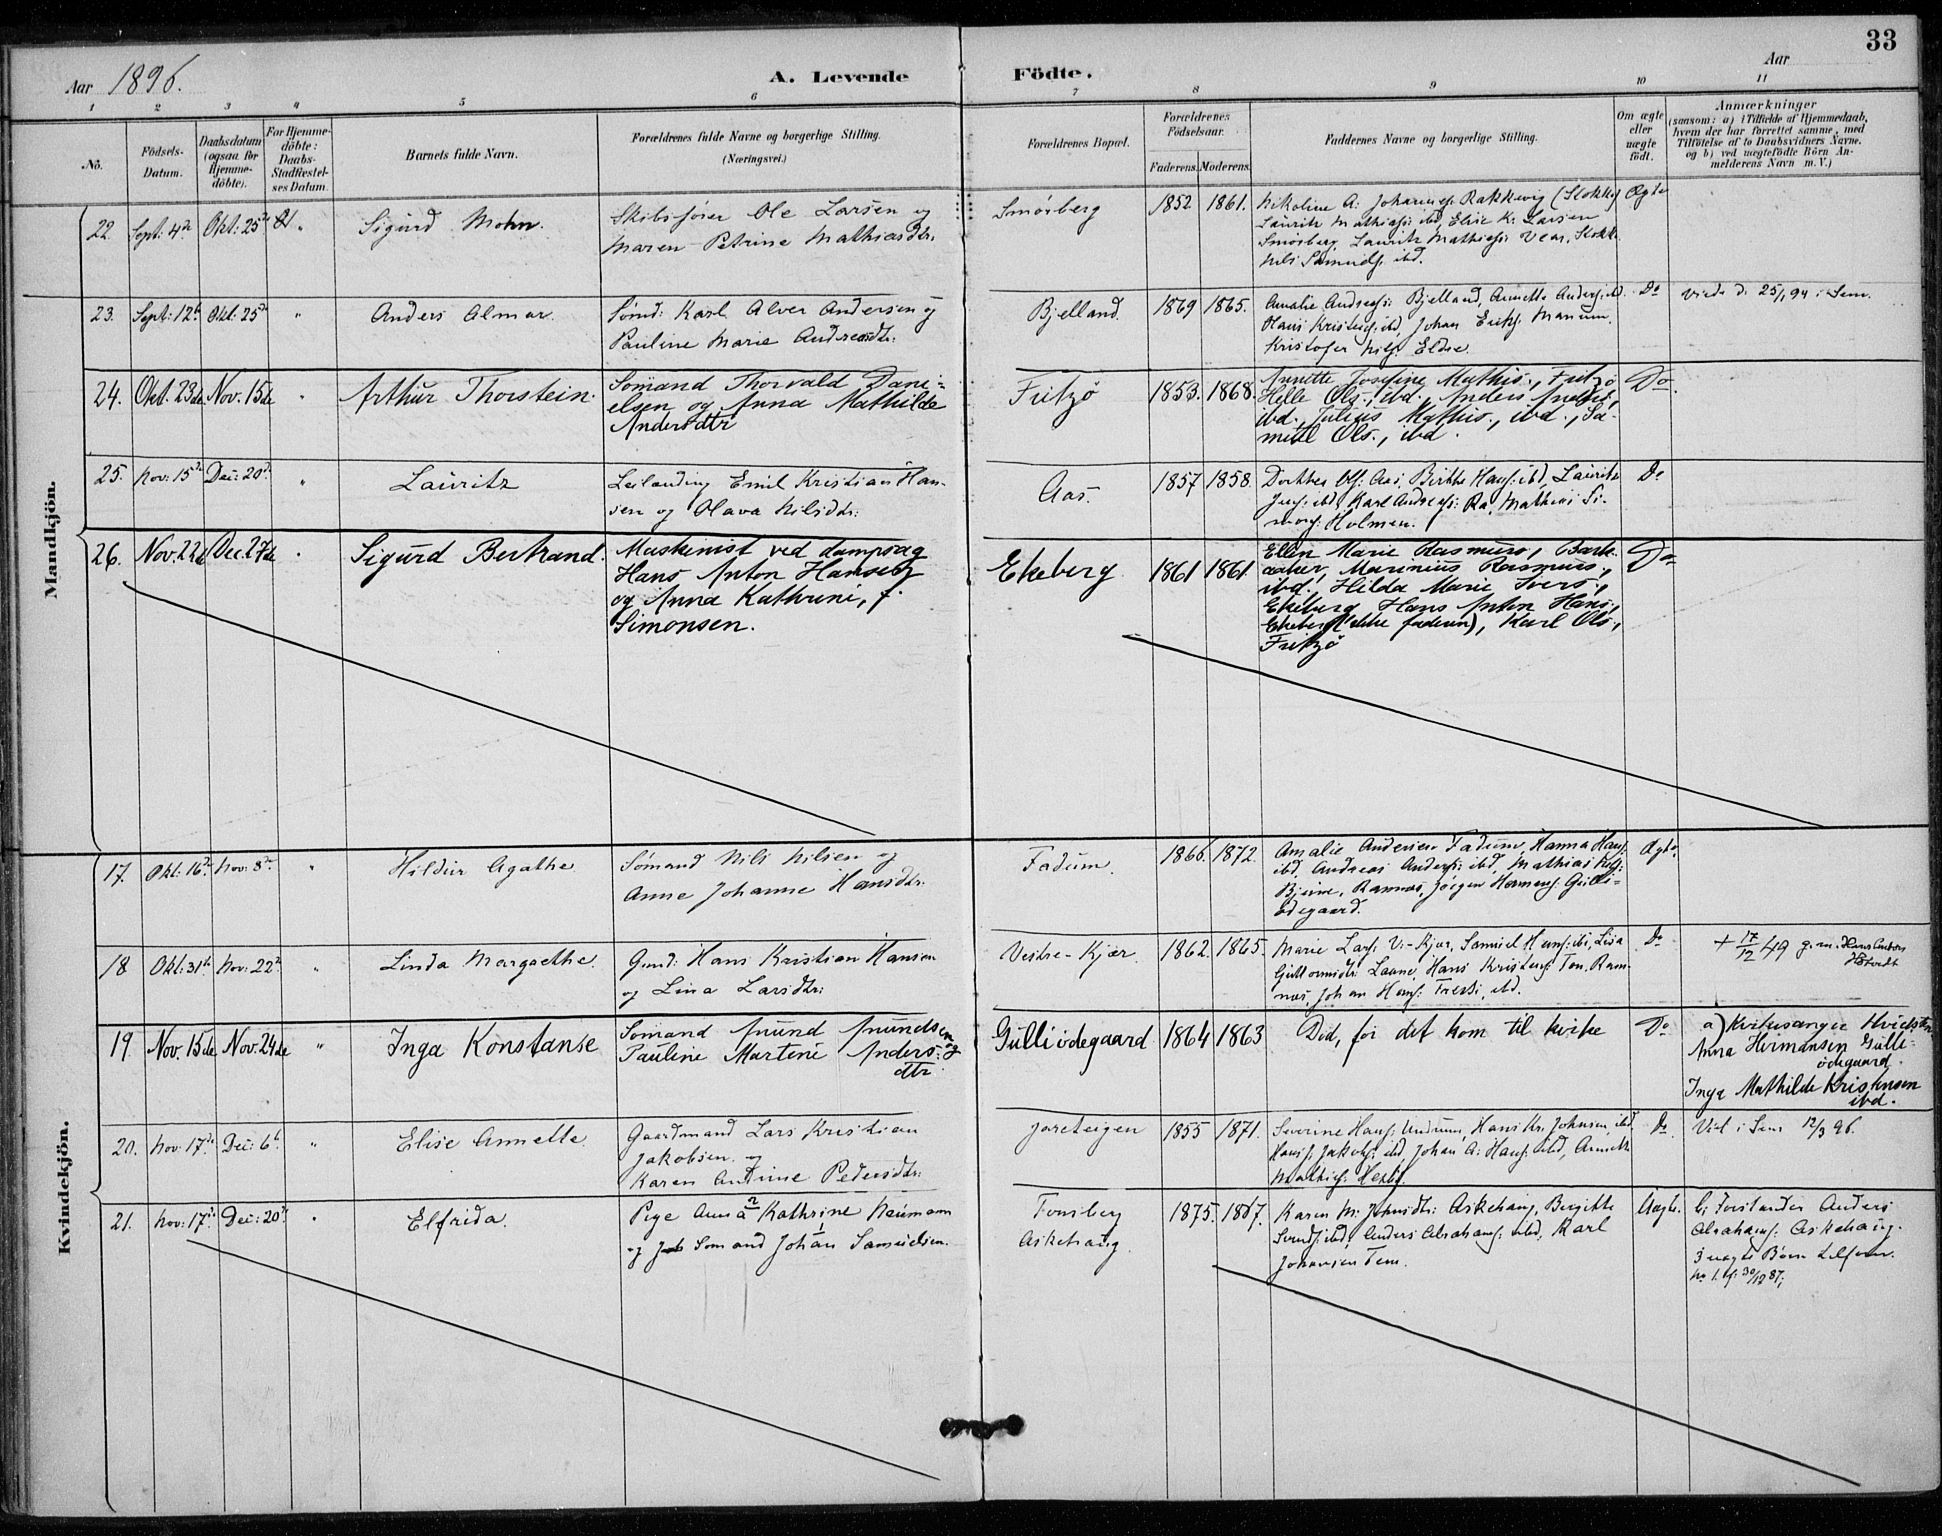 33
Aar 1896.
A. Levende Födte.
Aar
1 2 3 4 5 6 7 8 9 10 11
No.
Födsels-
Datum.
Daabsdatum
(ogsaa for
Hjemme-
döbte).
For Hjemme-
döbte:
Daabs-
Stadfæstel-
ses Datum.
Barnets fulde Navn.
Forældrenes fulde Navne og borgerlige Stilling.
(Næringsvei.)
Forældrenes Bopæl.
Forældrenes
Födselsaar.
Faderens. Moderens.
Faddernes Navne og borgerlige Stilling.
Om ægte
eller
uægte
födt.
Anmærkninger
(saasom: a) i Tilfælde af Hjemmedaab,
hvem der har forrettet samme, med
Tilföielse af to Daabsvidners Navne.
og b) ved uægtefödte Börn An-
melderens Navn m. V.)
Mandkjön.
22. Sept: 4de Okt: 25de "
Sigurd Mohn.
Skibsfører Ole Larsen og
Maren Petrine Mathiasdtr.
Smørberg 1852 1861.
Nikoline A. Johannes: Rakkevig (Stokke)
Lauritz Mathias: ibd, Elise K. Larsen
Smørberg, Lauritz Mathias: Vear, Stokke
Nils Samuels: ibd.
Ægte
23. Sept: 12te Okt: 25de "
Anders Almar.
Sømd: Karl Alver Andersen og
Pauline Marie Andreasdtr:
Bjelland. 1869 1865.
Amalie Andreas: Bjelland, Annette Anders: ibd.
Hans Kristens: ibd Johan Eriks: Manum.
Kristofer Nils: Eldre.
Do
Viede d. 25/1 94 i Sem.
24. Okt. 23de Nov. 15de "
Arthur Thorstein.
Sømand Thorvald Dani=
elsen og Anna Mathilde
Andersdtr
Fritzø 1853. 1868.
Annette Josefine Mathis., Fritzø
Helle Ols., ibd., Anders Anders.,
ibd., Julius Mathis., ibd., Sa-
muel Ols., ibd.
Do.
25. Nov: 15de Dec: 20de "
Lauritz
Leilending Emil Kristian Han-
sen og Olava Nilsdtr:
Aas. 1857 1858.
Dorthea Ols: Aas, Berthe Hans: ibd, Lauritz
Jens: ibd, Karl Andreas: Ra, Mathias Si-
mons: Holmen.
Do
26. Nov. 22de Dec. 27de "
Sigurd Bertrand.
Maskinist ved dampsag
Hans Anton Hansen
og Anna Kathrine, f.
Simonsen.
Ekeberg 1861 1861.
Ellen Marie Rasmuss., Bark-
aaker, Marinius Rasmuss.,
ibd., Hilda Marie Ivers.,
Ekeberg Hans Anton Hans.,
Ekeberg (ikke faderen), Karl Ols.,
Fritzø
Do
Kvindekjön.
17. Okt: 16de Nov: 8de "
Hildur Agathe
Sømand Nils Nilsen og
Anne Johanne Hansdtr:
Fadum. 1866. 1872.
Amalie Andersen Fadum, Hanna Hans:
ibd. Andreas Anders: ibd, Mathias
Bjerne, Ramnæs, Jørgen Hermans: Gulli=
ødegaard.
Ægte.
18 Okt: 31te Nov: 22de "
Linda Margrethe.
Gmd: Hans Kristian Hansen
og Lina Larsdtr:
Vestre-Kjær. 1862. 1865.
Marie Lars: V.-Kjær, Samuel Hans: ibd, Lisa
Guttormsdtr: Laane, Hans Kristens: Tem, Ram-
næs, Johan Hans: ibd.
Do
+ 17/12 49 g. m. Hans
19. Nov. 15de Nov. 24de "
Inga Konstanse
Sømand Anund Anundsen og
Pauline Martine Anders=
dtr.
Gulliødegaard 1864 1863
Død, før det kom til kirke
Do
a) Kirkesanger
Anna Hermansen Gulli=
ødegaard.
Inga Mathilde Kristensen
ibd.
20. Nov: 17de Dec: 6te "
Elise Annette.
Gaardmand Lars Kristian
Jakobsen og
Karen Andrine Pedersdtr:
Jareteigen 1855 1871.
Severine Hans: Undrum, Hans Kr. Johnsen ibd
Hans: Jakobs: ibd, Johan A: Hans: ibd, Annette
Mathis:
Do.
Viet i Sem 12/3 96.
21. Nov: 17de Dec: 20de "
Elfrida.
Pige Anna Kathrine Neumann
og Sømand Johan Samuelsen.
Tønsberg
Askehaug. 1875. 1867.
Karen M. Johnsdtr: Askehaug, Birgitte
Svends: ibd, Anders Abrahams: ibd, Karl
Johansen Tem.
Uægte.
b) Forstander Anders
Abrahams: Askehaug.
3 uægte Børn
No 1. 30/12 87;